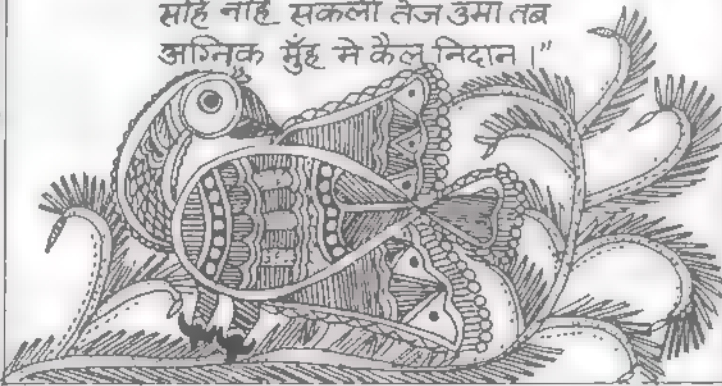 सहि नहि सकली तेज उमा तब
अग्निक मुँह मे कैल निदान ।”